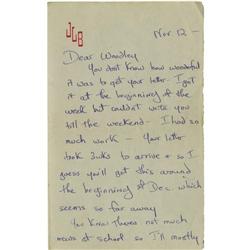 JLB
Nov 12 -
Dear Woodley
You don't know how wonderful
it was to get your letter. I got
it at the beginning of the
week but couldn't write you
till the weekend - I had so
much work - Your letter
took 3wks to arrive & so I
guess you'll get this around
the beginning of Dec. which
seems so far away
You know theres not much
news at school so I'm mostly